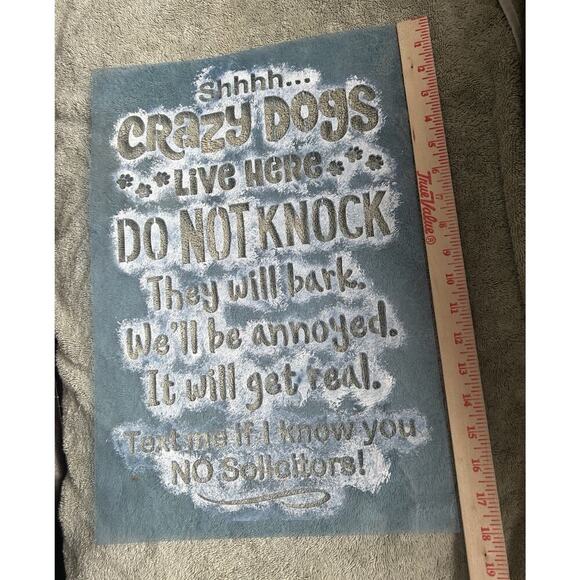 Shhhh...
CRAZY DOGS
LIVE HERE
DO NOT KNOCK
They will bark.
We'll be annoyed.
It will get real.
Text me if I know you
NO Solicitors!
TrueValue®
2
3
4
5
6
7
8
9
10
11
12
13
14
15
16
17
18
19